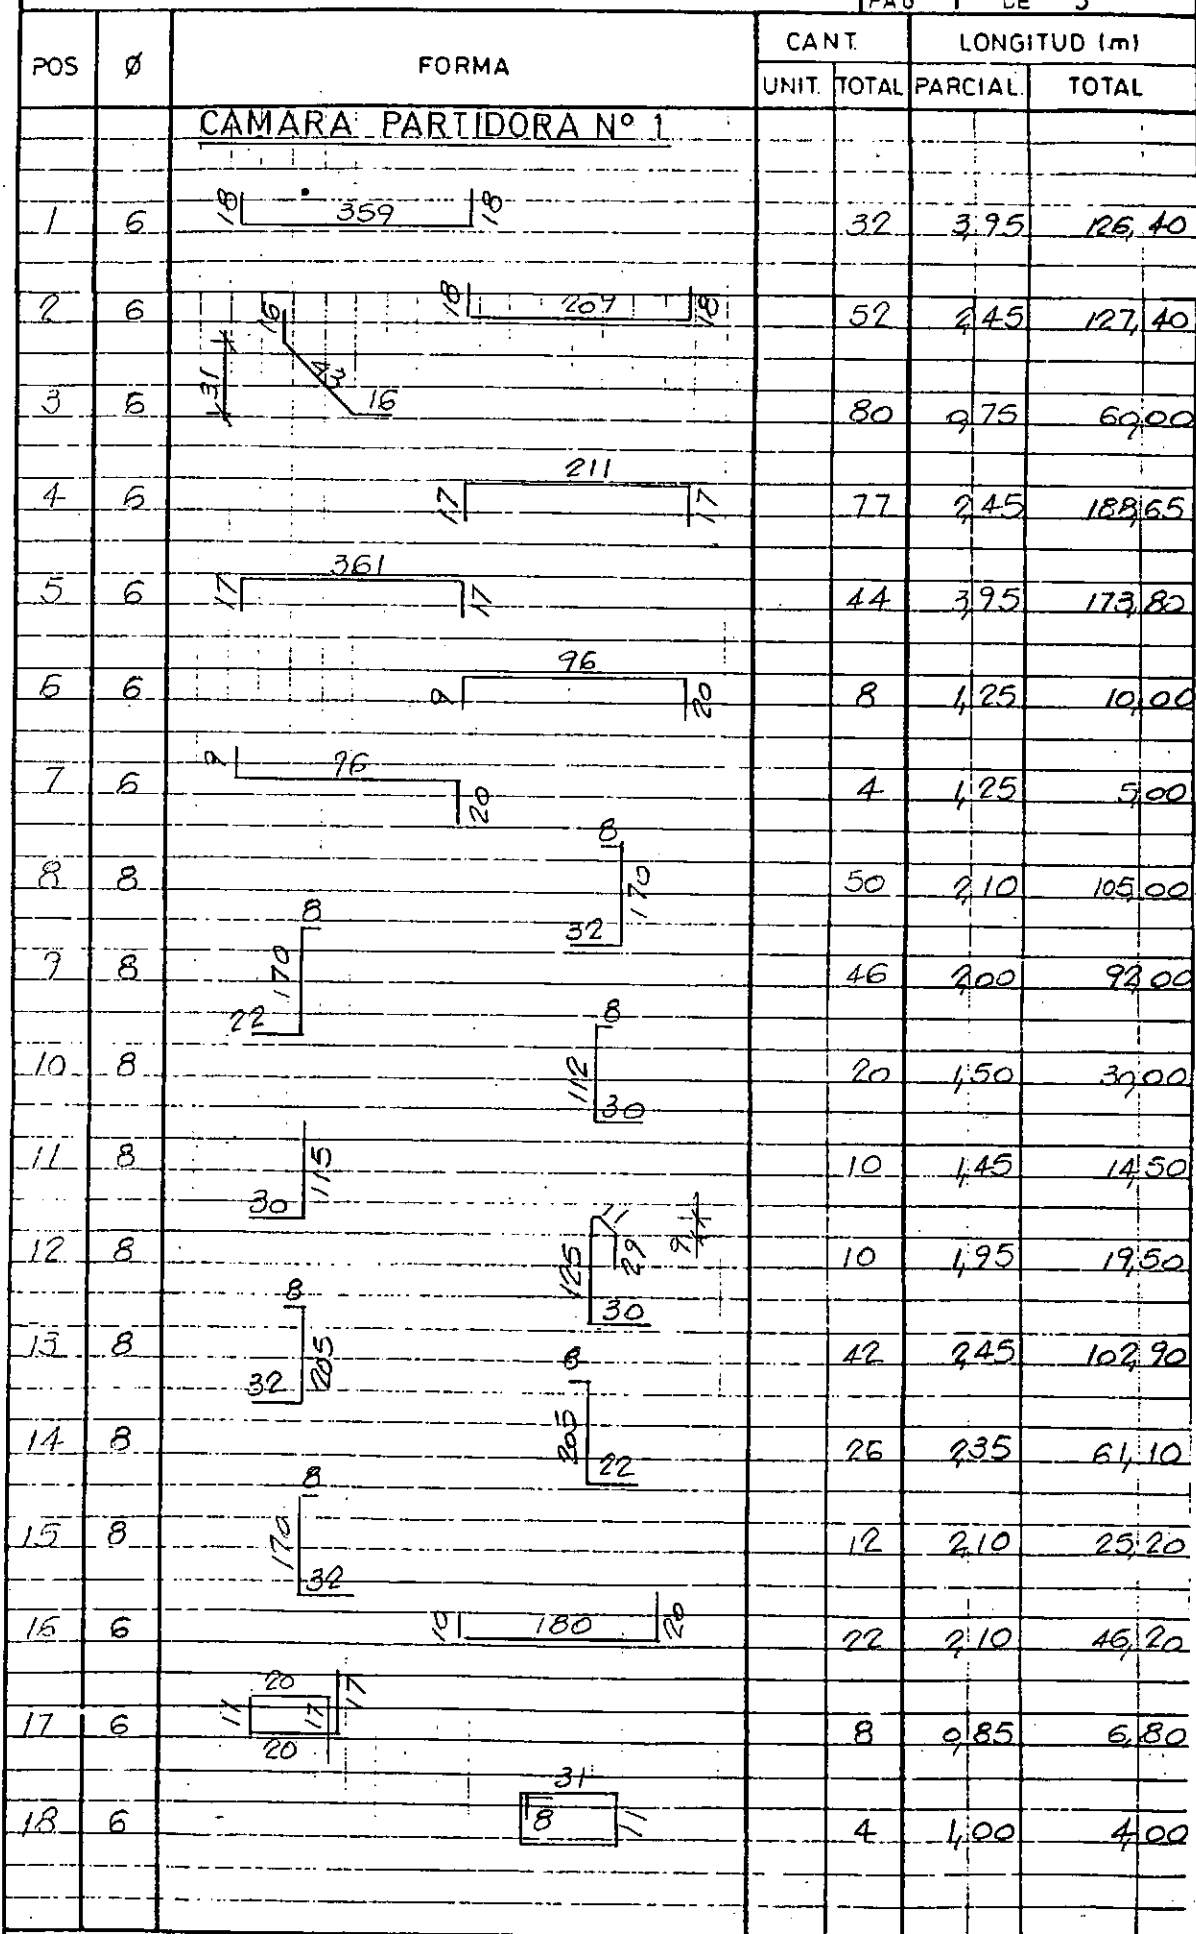 PAG 1 DE 5
POS Ø FORMA CANT. LONGITUD (m)
UNIT. TOTAL PARCIAL. TOTAL
CAMARA PARTIDORA Nº 1
1 6 18 359 18 32 3,95 126,40
2 6 18 209 18 52 2,45 127,40
3 6 31 16 43 16 80 0,75 60,00
4 6 17 211 17 77 2,45 188,65
5 6 17 361 17 44 3,95 173,80
6 6 9 96 20 8 1,25 10,00
7 6 9 96 20 4 1,25 5,00
8 8 8 170 32 50 2,10 105,00
9 8 8 170 22 46 2,00 92,00
10 8 8 112 30 20 1,50 30,00
11 8 115 30 10 1,45 14,50
12 8 125 11 29 9 30 10 1,95 19,50
13 8 8 205 32 42 2,45 102,90
14 8 8 205 22 26 2,35 61,10
15 8 8 170 32 12 2,10 25,20
16 6 10 180 20 22 2,10 46,20
17 6 11 20 17 17 20 8 0,85 6,80
18 6 31 8 11 4 1,00 4,00